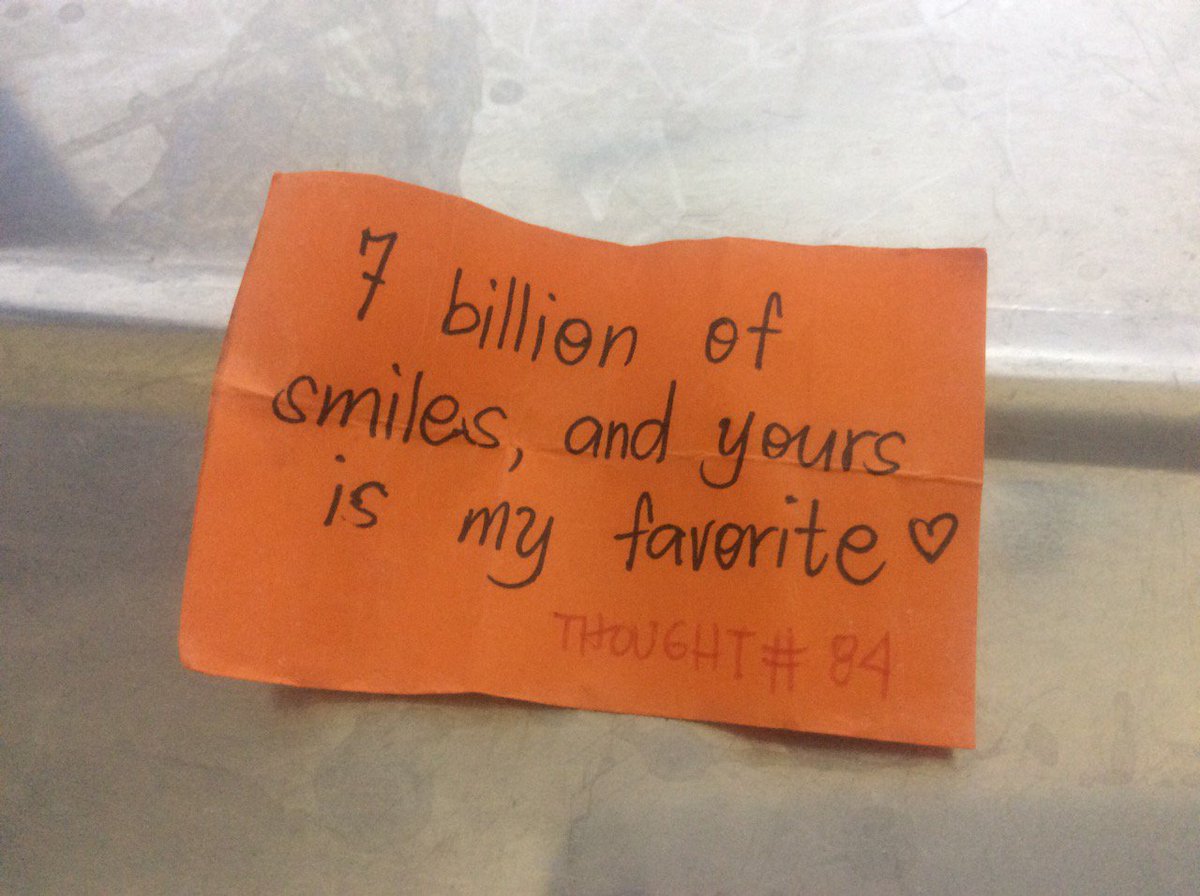 7 billion of
smiles, and yours
is my favorite ♡
THOUGHT # 84